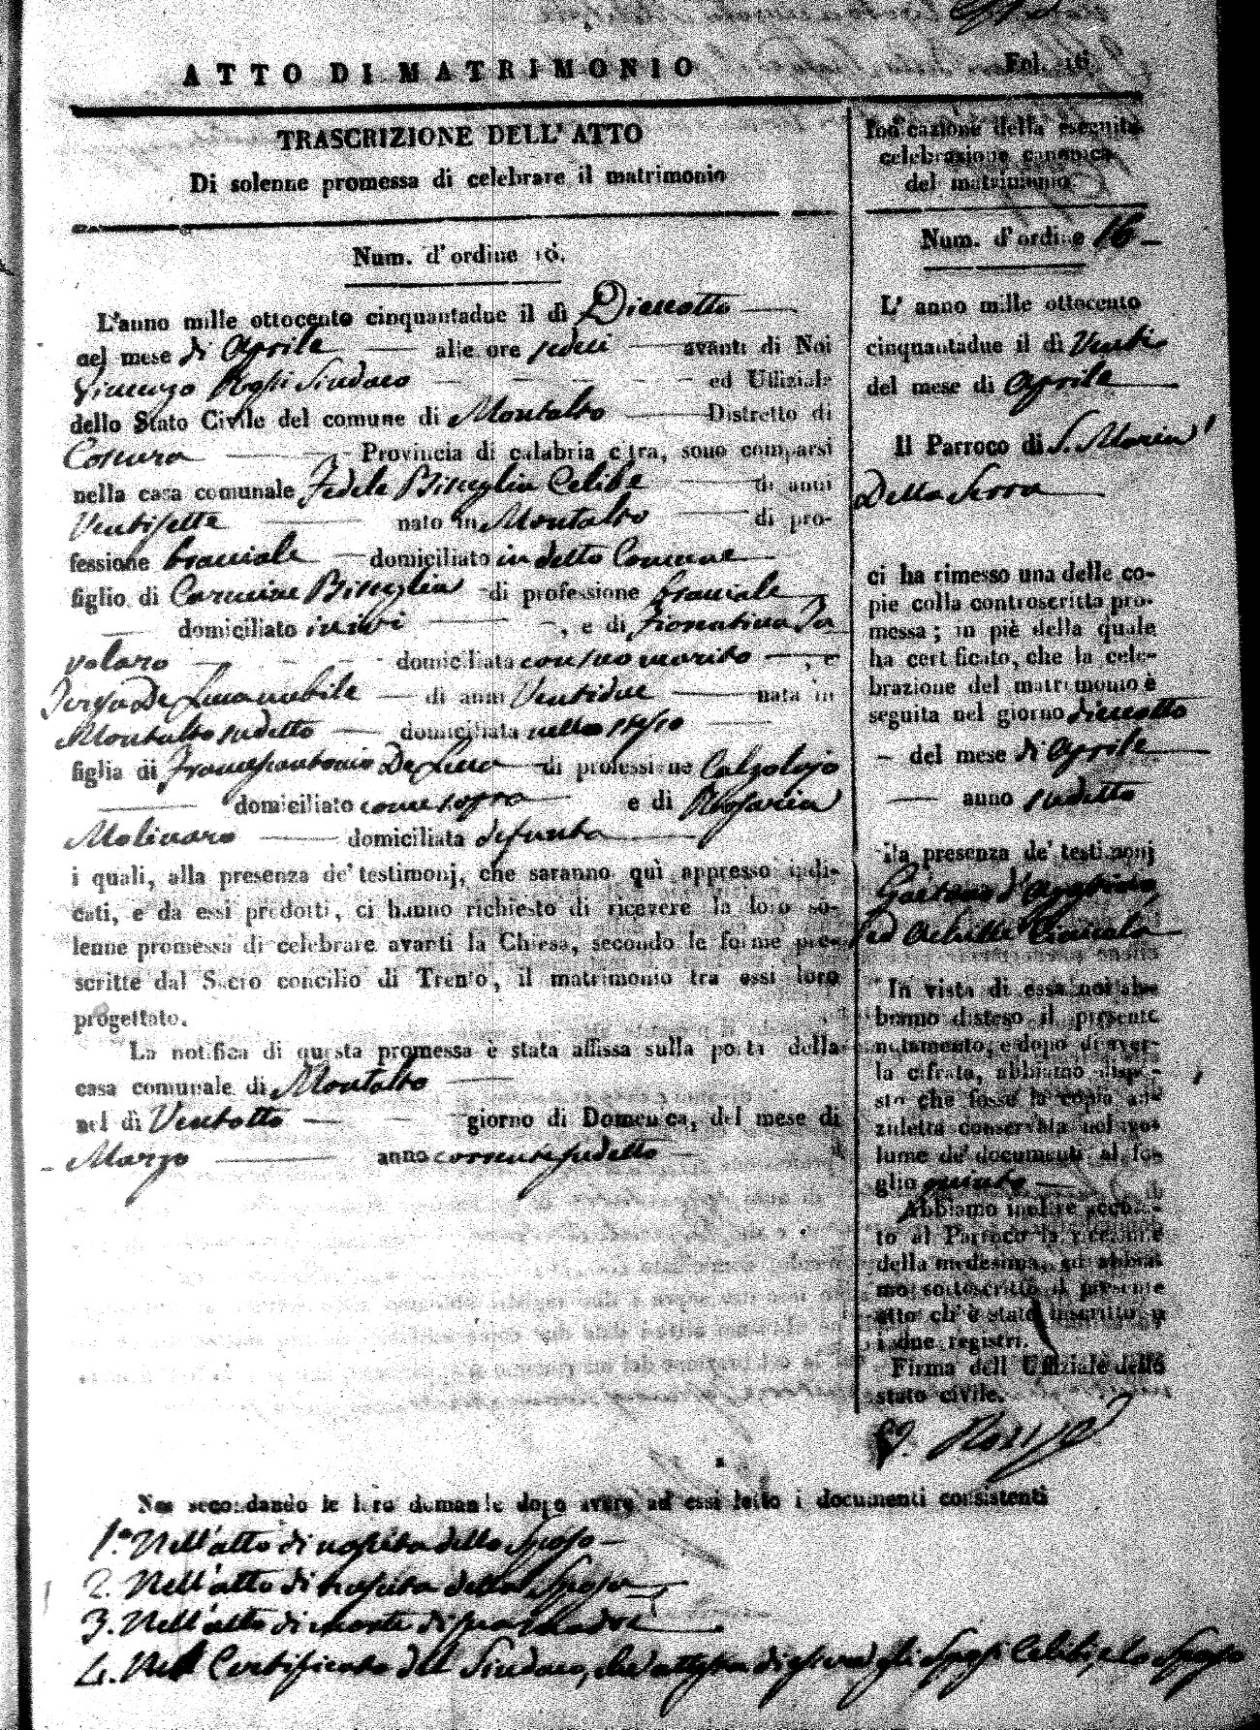 ATTO DI MATRIMONIO
Fol. 16
TRASCRIZIONE DELL'ATTO
Di solenne promessa di celebrare il matrimonio
Num. d'ordine 16.
L'anno mille ottocento cinquantadue il dì Dieciotto
nel mese di Aprile alle ore sedici avanti di Noi
Vincenzo Rossi Sindaco ed Uffiziale
dello Stato Civile del comune di Montalto Distretto di
Cosenza Provincia di calabria citra, sono comparsi
nella casa comunale Fedele Bisceglia Celibe di anni
Ventisette nato in Montalto di pro-
fessione bracciale domiciliato in detto Comune
figlio di Carmine Bisceglia di professione bracciale
domiciliato inivi, e di Fiorentina
domiciliata con suo marito, e
Teresa De Luca nubile di anni Ventidue nata in
Montalto sudetto domiciliata nello stesso
figlia di Francescantonio De Luca di professione Calzolajo
domiciliato come sopra e di Rosaria
Molinaro domiciliata defunta
i quali, alla presenza de' testimonj, che saranno quì appresso indi-
cati, e da essi prodotti, ci hanno richiesto di ricevere la loro so-
lenne promessa di celebrare avanti la Chiesa, secondo le forme pre-
scritte dal Sacro concilio di Trento, il matrimonio tra essi loro
progettato.
La notifica di questa promessa è stata affissa sulla porta della
casa comunale di Montalto
nel dì Ventotto giorno di Domenica, del mese di
Marzo anno corrente sudetto
Indicazione della eseguita
celebrazione canonica
del matrimonio
Num. d'ordine 16
L' anno mille ottocento
cinquantadue il dì Venti
del mese di Aprile
Il Parroco di S. Maria
Della Serra
ci ha rimesso una delle co-
pie colla controscritta pro-
messa; in piè della quale
ha certificato, che la cele-
brazione del matrimonio è
seguita nel giorno dieciotto
del mese di Aprile
anno sudetto
alla presenza de' testimonj
Gaetano
ed Achille
In vista di essa noi ab-
biamo disteso il presente
notamento, e dopo di aver-
la cifrata, abbiamo dispo-
sto che fosse la copia
conservata nel vo-
lume de' documenti al fo-
glio quinto
Abbiamo inoltre accusa-
to al Parroco la ricezione
della medesima, ed abbia-
mo sottoscritto il presente
atto ch' è stato inscritto
i due registri.
Firma dell' Uffiziale dello
stato civile.
V. Rossi
Noi secondando le loro domande dopo avere ad essi letto i documenti consistenti
1.° Nell'atto di nascita dello Sposo
2. Nell'atto di nascita della Sposa
3. Nell'atto di morte di sua Madre
4. Nel Certificato del Sindaco, che attesta di esserno gli Sposi Celibi, e lo Sposo